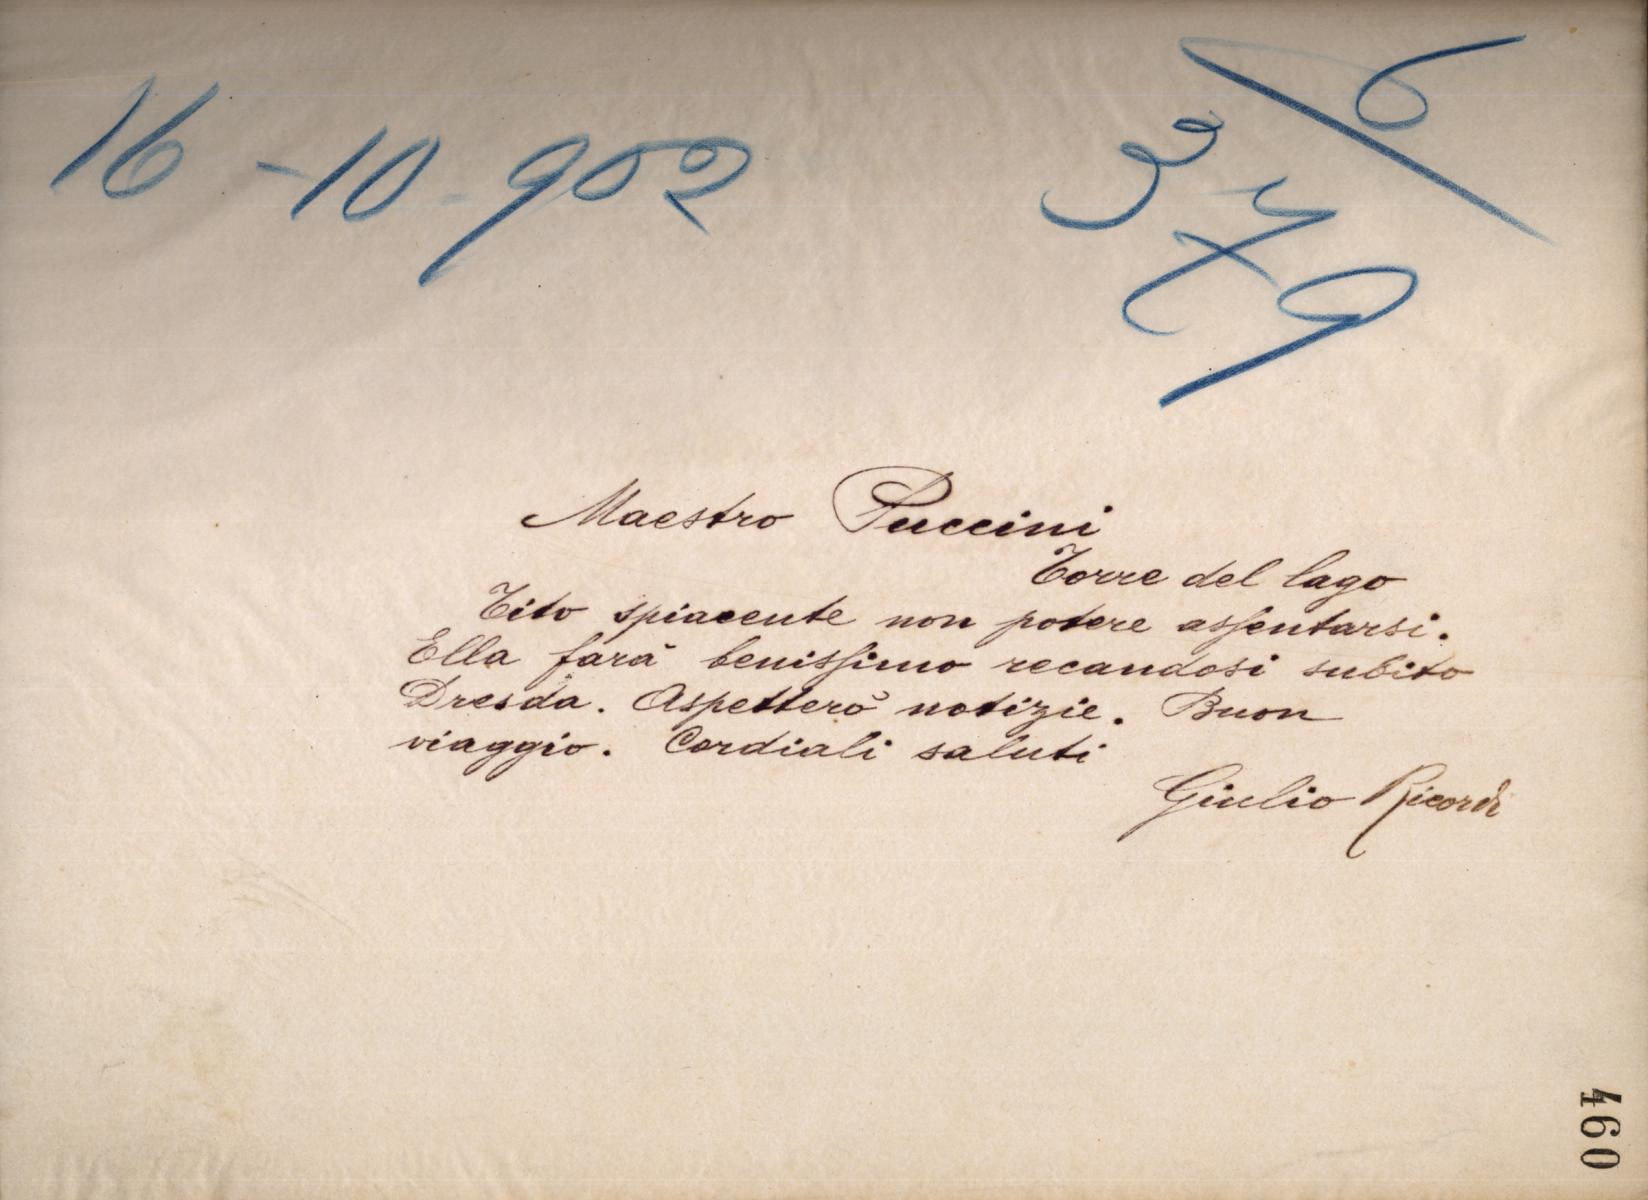 16-10-902
6
379
Maestro Puccini
Torre del lago
Tito spiacente non potere assentarsi.
Ella farà benissimo recandosi subito
Dresda. Aspetterò notizie. Buon
viaggio. Cordiali saluti
Giulio Ricordi
460